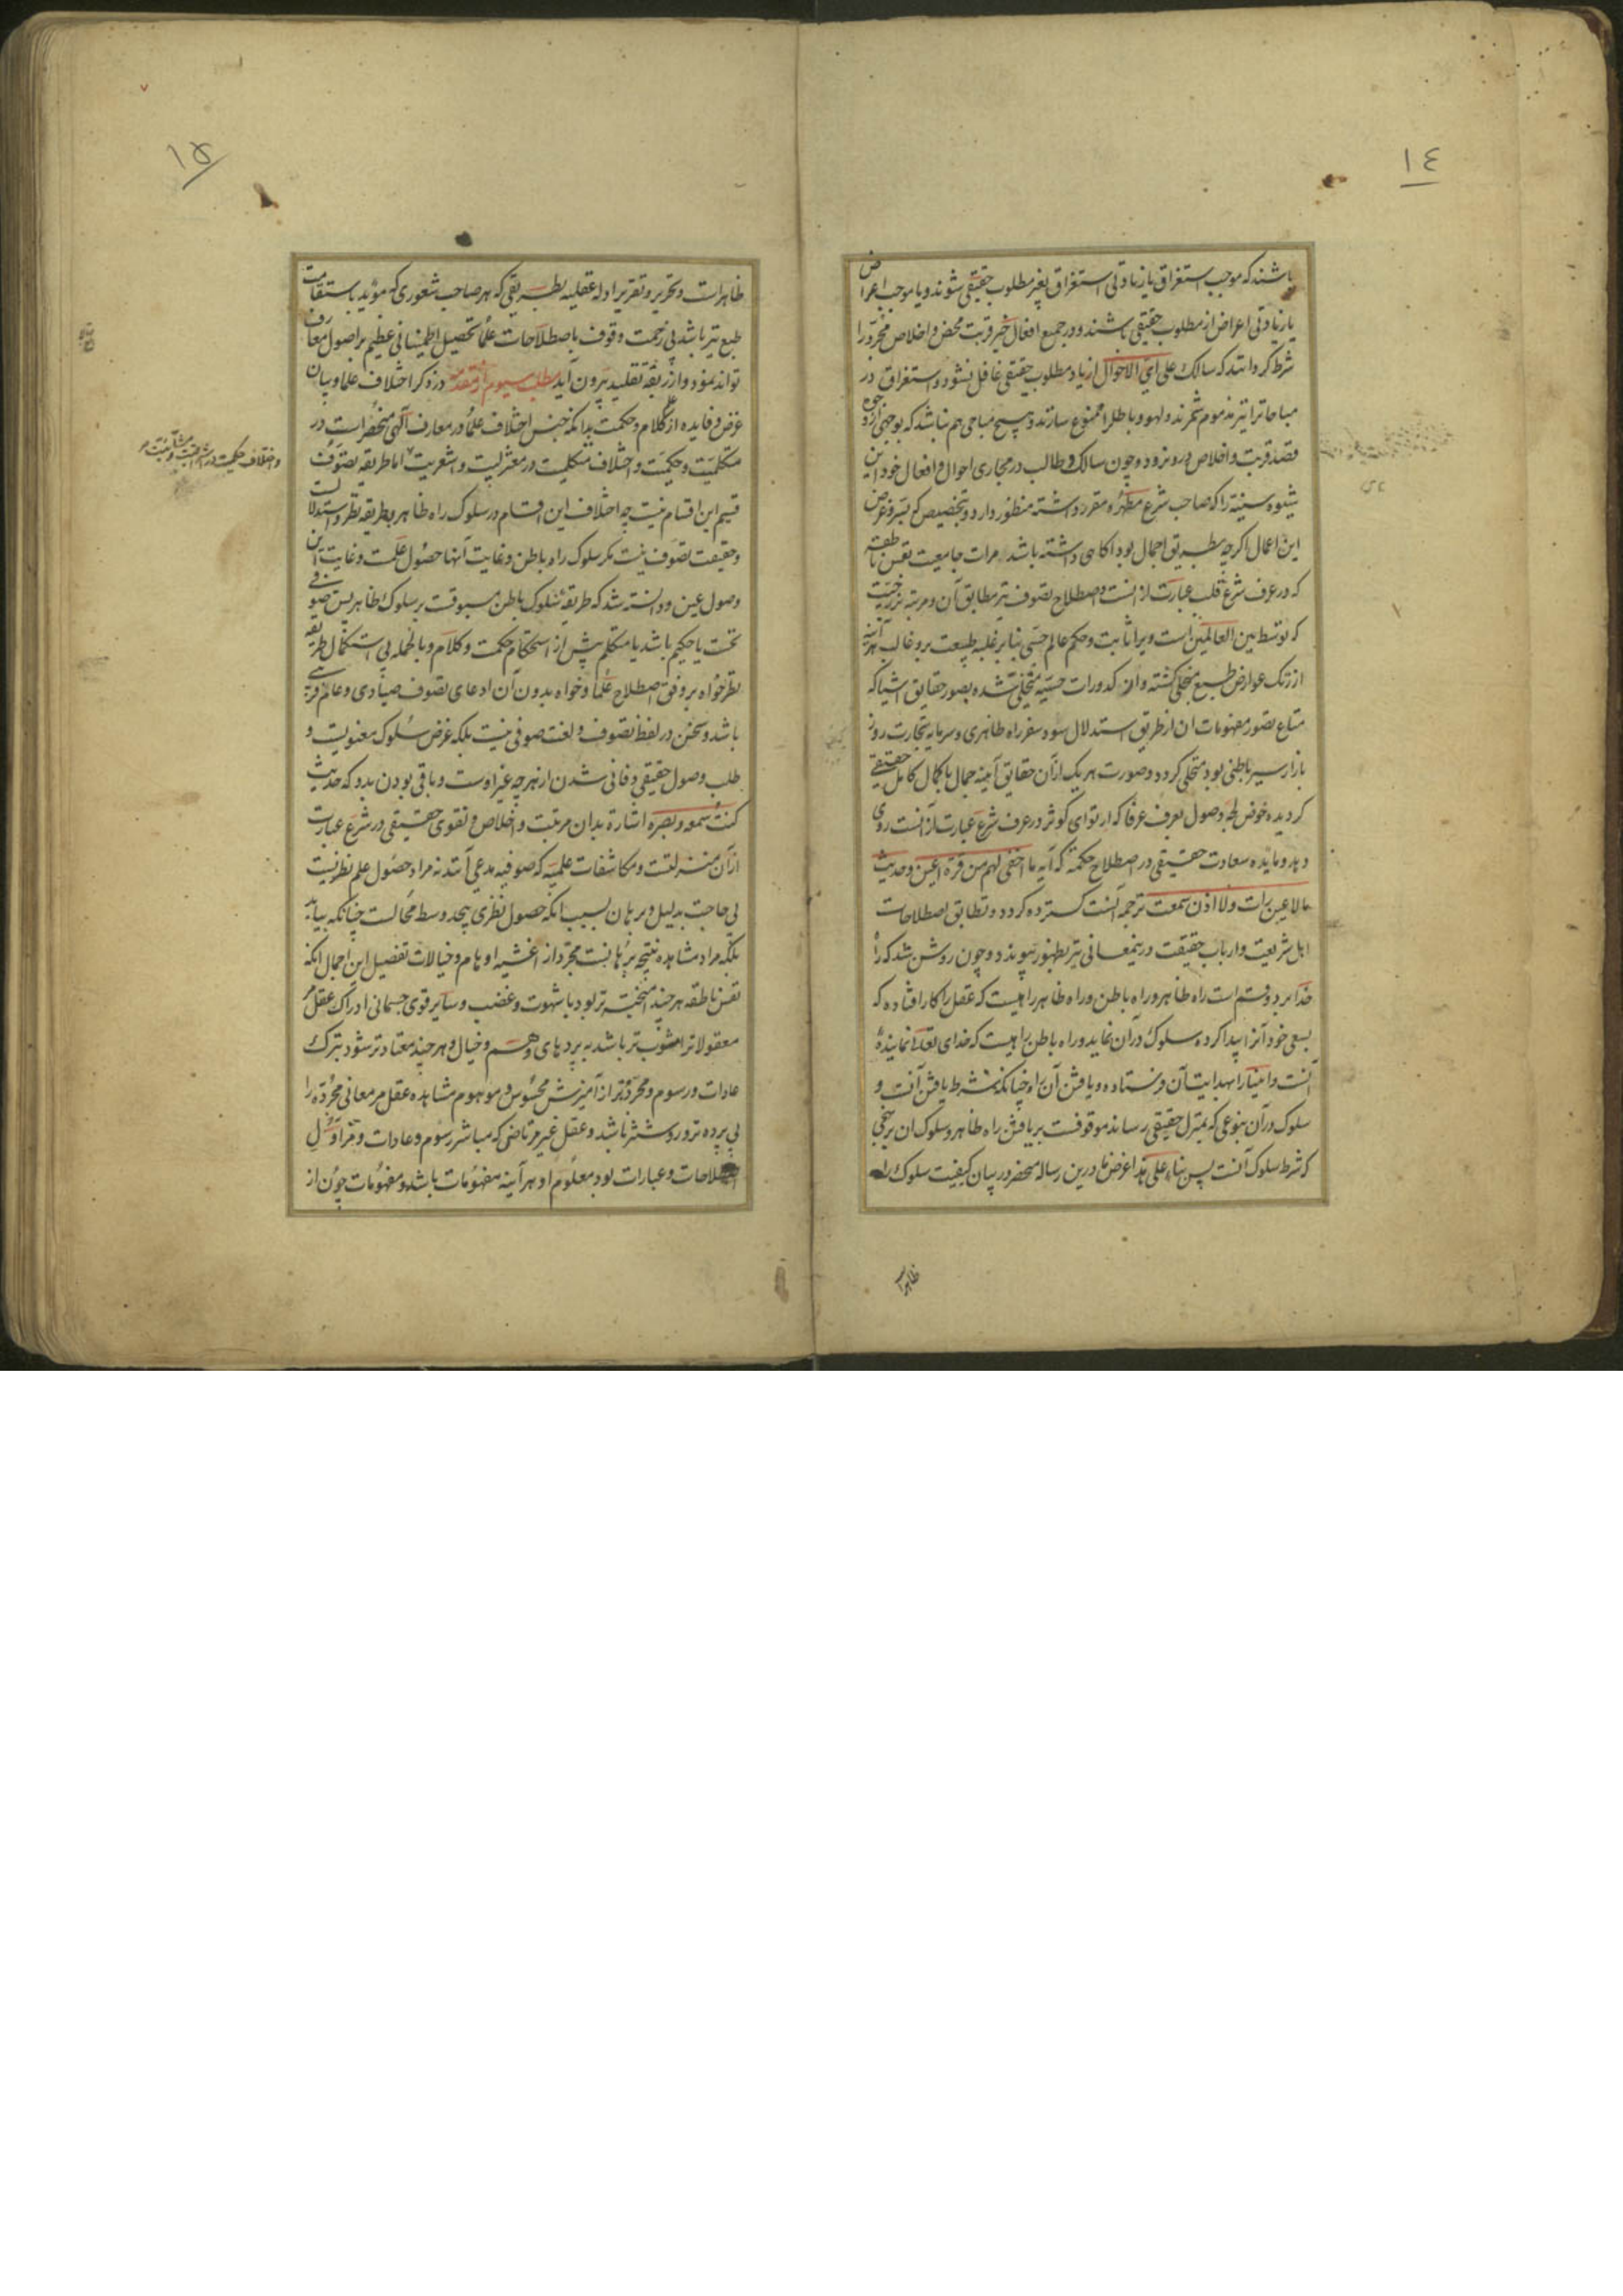 ١٤
باشند که موجب استغراق یا زیادتی استغراق بغیر مطلوب حقیقی شوند و یا موجب اعراض
یا زیادتی اعراض از مطلوب حقیقی باشند و در جمیع افعال خیر قربت محض و اخلاص مجرد را
شرط کرده‌اند که سالک علی ای الاحوال از یاد مطلوب حقیقی غافل نشود و استغراق در
مباحات را نیز مذموم شمرند و لهو و باطل را ممنوع سازند و هیچ مباحی هم نباشد که بوجهی از وجوه
قصد قربت و اخلاص درو نرود و چون سالک و طالب در مجاری احوال و افعال خود این
شیوه سنیه را که صاحب شرع مطهره مقرر داشته منظور دارد و بتخصیص که بسر و غرض
این اعمال اگرچه بطریق اجمال بود آگاهی داشته باشد مرآت جامعیت نفس ناطقه
که در عرف شرع قلب عبارت از انست و اصطلاح تصوف نیز مطابق آن و مرتبه برزخیت
که توسط بین العالمین است ویرا ثابت و حکم عالم حسی بنا بر غلبه طبیعت برو غالب هر آینه
از زنگ عوارض طبیع منجلی گشته و از کدورات حسیه متخلی شده بصور حقایق اشیا که
متاع تصور مفهومات ان از طریق استدلال سود سفر راه ظاهری و سرمایه تجارت روز
بازار سیر باطنی بود متجلی گردد و صورت هر یک از آن حقایق آینه جمال با کمال کامل حقیقی
گردیده خوض لجه وصول بعرف عرفا که ارتوای کوثر در عرف شرع عبارت از انست روی
دهد و مایده سعادت حقیقی در اصطلاح حکمة که آیه ما اخفی لهم من قرة اعین و حدیث
ما لا عین رات ولا اذن سمعت ترجمه آنست گسترده گردد و تطابق اصطلاحات
اهل شریعت و ارباب حقیقت درینمعانی نیز بظهور پیوندد و چون روشن شد که راه
خدا بر دو قسم است راه ظاهر و راه باطن و راه ظاهر راهیست که عقل را کار افتاده که
بسعی خود آنرا پیدا کرده سلوک در آن نماید و راه باطن راهیست که خدای تعالی نماینده
آنست و انبیا را بهدایت آن فرستاده و یافتن آن راه چنانکه شرط یافتن آنست و
سلوک در آن بنوعی که بمنزل حقیقی رساند موقوفست بر یافتن راه ظاهر و سلوک ان بر نهجی
که شرط سلوک آنست پس بناء علی هذا غرض ما درین رساله منحصر در بیان کیفیت سلوک راه
ظاهر است
١۵
ظاهرات و تحریر و تقریر ادله عقلیه بطریقی که هر صاحب شعوری که مؤید باستقامت
طبع نیز باشد بی زحمت وقوف باصطلاحات علما تحصیل اطمینانی عظیم بر اصول معارف
تواند نمود و از ربقه تقلید بیرون آید مطلب سیوم از مقدمه در ذکر اختلاف علما و بیان
غرض و فایده از علم کلام و حکمت بدانکه جنس اختلاف علما در معارف الهی منحصر است در
متکلمیت و حکمیت و اختلاف متکلمیت در معتزلیت و اشعریت اما طریقه تصوف
و اختلاف حکمیت در اشراقیت و مشائیت
قسیم این اقسام نیست چه اختلاف این اقسام در سلوک راه ظاهر و طریقه نظر و استدلالست
و حقیقت تصوف نیست مگر سلوک راه باطن و غایت آنها حصول علمست و غایت این
وصول عین و دانسته شد که طریقه سلوک باطن مسبوقست بر سلوک ظاهر پس صوفی
نخست یا حکیم باشد یا متکلم پیش از استحکام حکمت و کلام و بالجمله بی استکمال طریقه
نظر خواه بر وفق اصطلاح علما و خواه بدون آن ادعای تصوف صیادی و عام فریبی
باشد و سخن در لفظ تصوف و لغت صوفی نیست بلکه غرض سلوک معنویست و
طلب وصول حقیقی و فانی شدن از هرچه غیر اوست و باقی بودن بدو که حدیث
کنت سمعه و بصره اشارة بدان مرتبت و اخلاص و تقوی حقیقی در شرع عبارت
از آن منزلتست و مکاشفات علمیه که صوفیه مدعی آنند نه مراد حصول علم نظریست
بی حاجت بدلیل و برهان بسبب انکه حصول نظری بیحد وسط محالست چنانکه بیاید
بلکه مراد مشاهده نتیجه برهانست مجرد از اغشیه اوهام و خیالات تفصیل این اجمال انکه
نفس ناطقه هر چند آمیخته تر بود با شهوت و غضب و سایر قوی جسمانی ادراک عقل مر
معقولات را مشوب تر باشد به پردهای وهم و خیال و هر چند معتاد تر شود بترک
عادات و رسوم و مجرد تر از آمیزش محسوس و موهوم مشاهده عقل مر معانی مجرده را
بی پرده تر و روشنتر باشد و عقل غیر مرتاضی که مباشر رسوم و عادات و مزاول
اصطلاحات و عبارات بود معلوم او هر آینه مفهومات باشد و مفهومات چون از